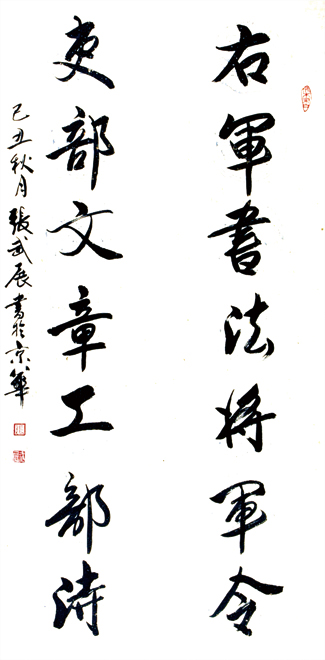 右軍書法將軍令
吏部文章工部詩
己丑秋月張武展書於京華